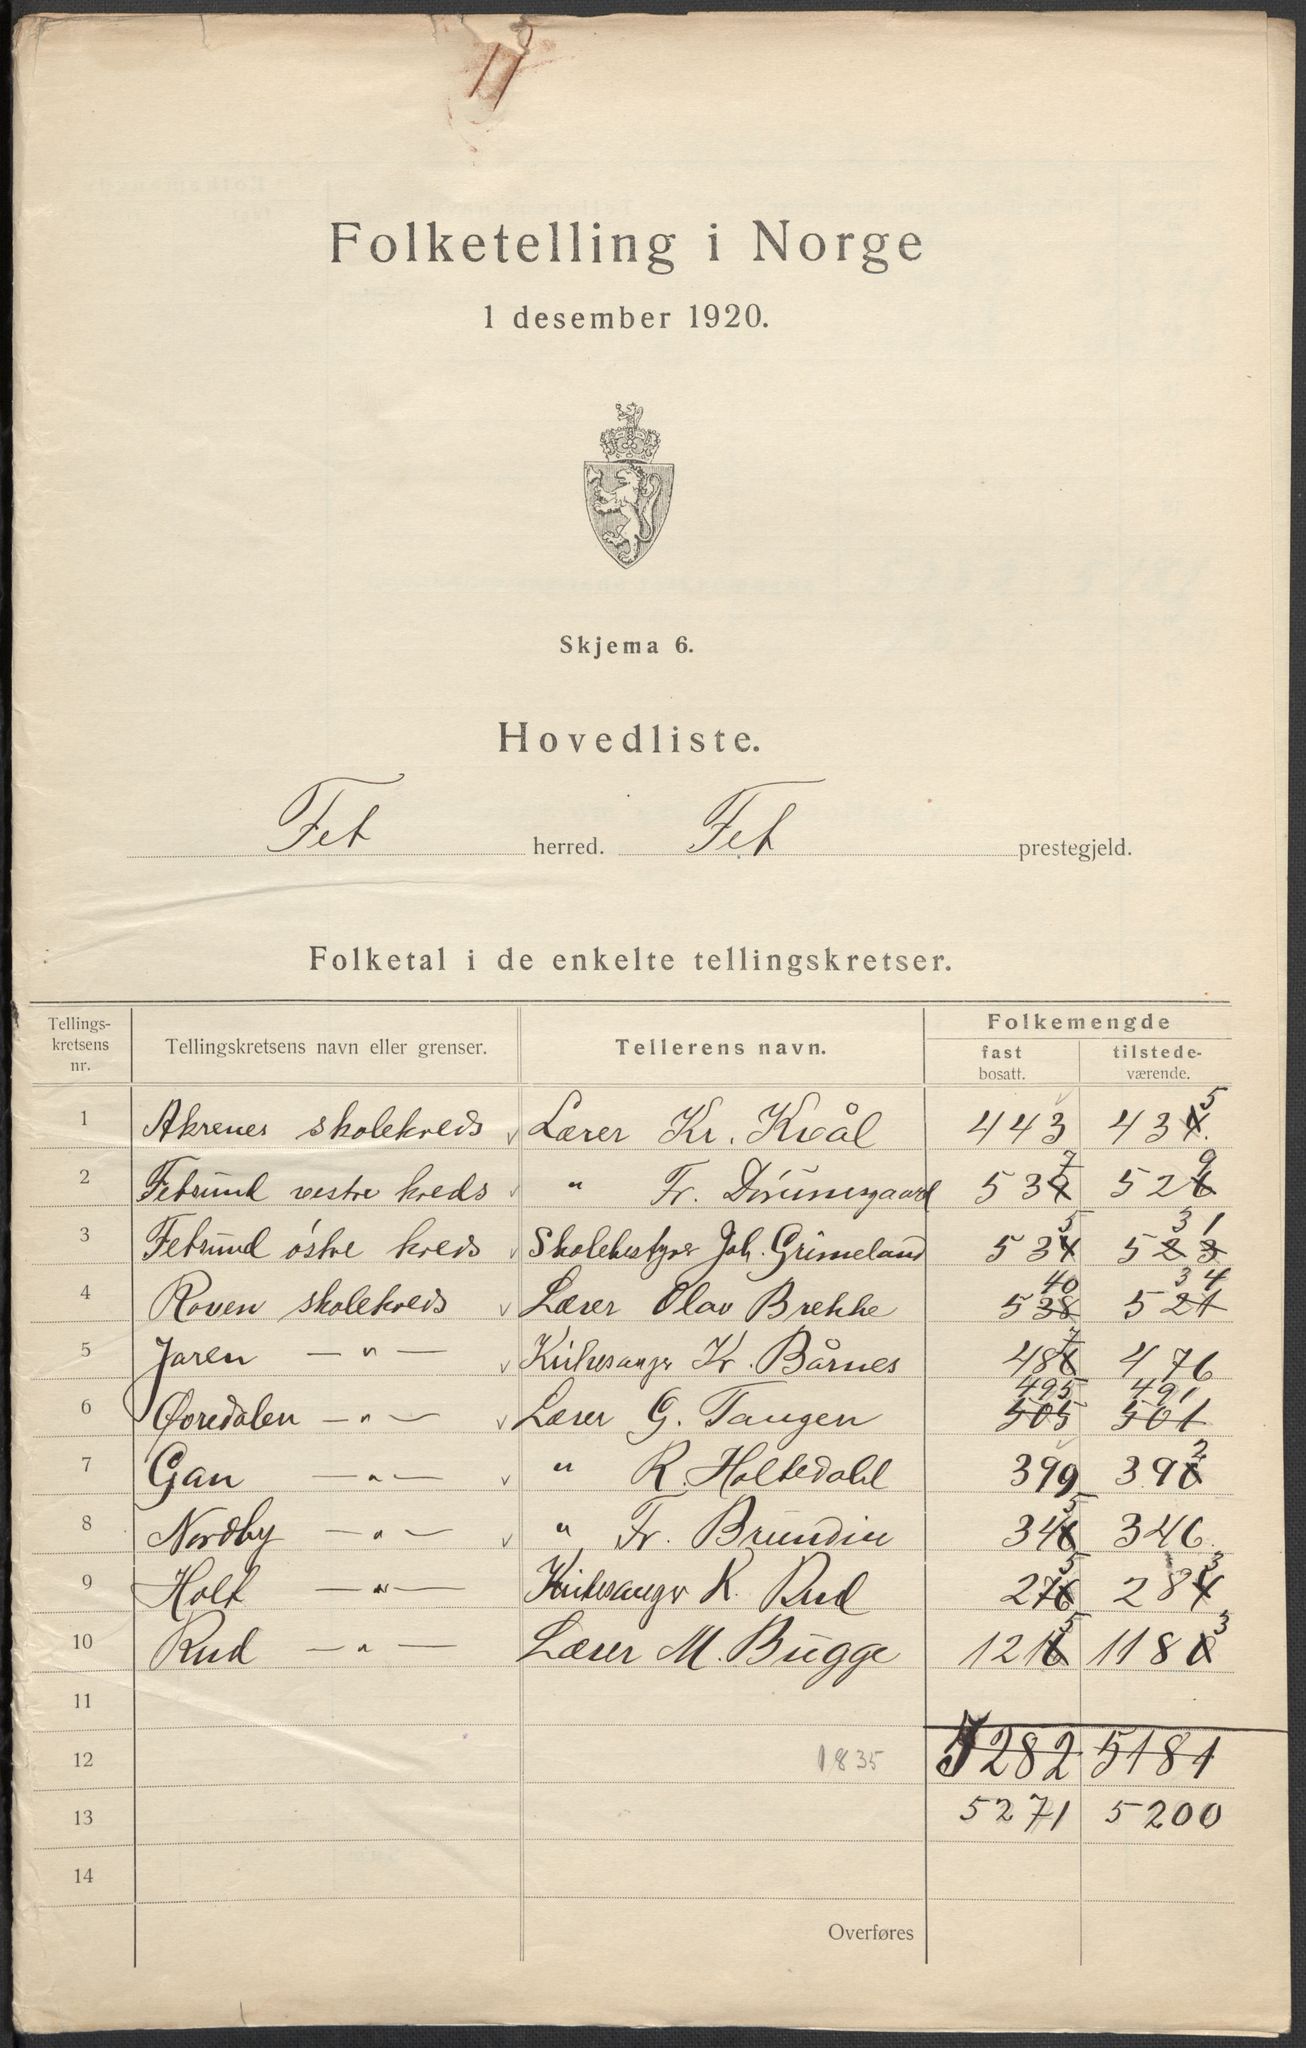 Folketelling i Norge
1 desember 1920.
Skjema 6.
Hovedliste.
Fet herred. Fet prestegjeld.
Folketal i de enkelte tellingskretser.
Tellings-kretsens nr. Tellingskretsens navn eller grenser. Tellerens navn. Folkemengde
fast bosatt. tilstede-værende.
1 Akrenes skolekreds v Lærer Kr. Kvål 443 435
2 Fetsund vestre kreds v " Fr. 537 529
3 Fetsund østre kreds v Skolebestyrer Joh. Grimeland 535 531
4 Roven skolekreds v Lærer Olav Brekke 540 534
5 Jaren — " — v Kirkesanger Kr. Bårnes 487 476
6 — " — v Lærer G. Tangen 505 495 501 491
7 Gan — " — v " R. Holtedahl 399 392
8 Nordby — " — v " Fr. Brundin 345 346
9 Holt — " — Kirkesanger K. Rud 275 283
10 Rud — " — Lærer M. Bugge 1215 1183
11
12 1835 5282 5181
13 5271 5200
14
Overføres